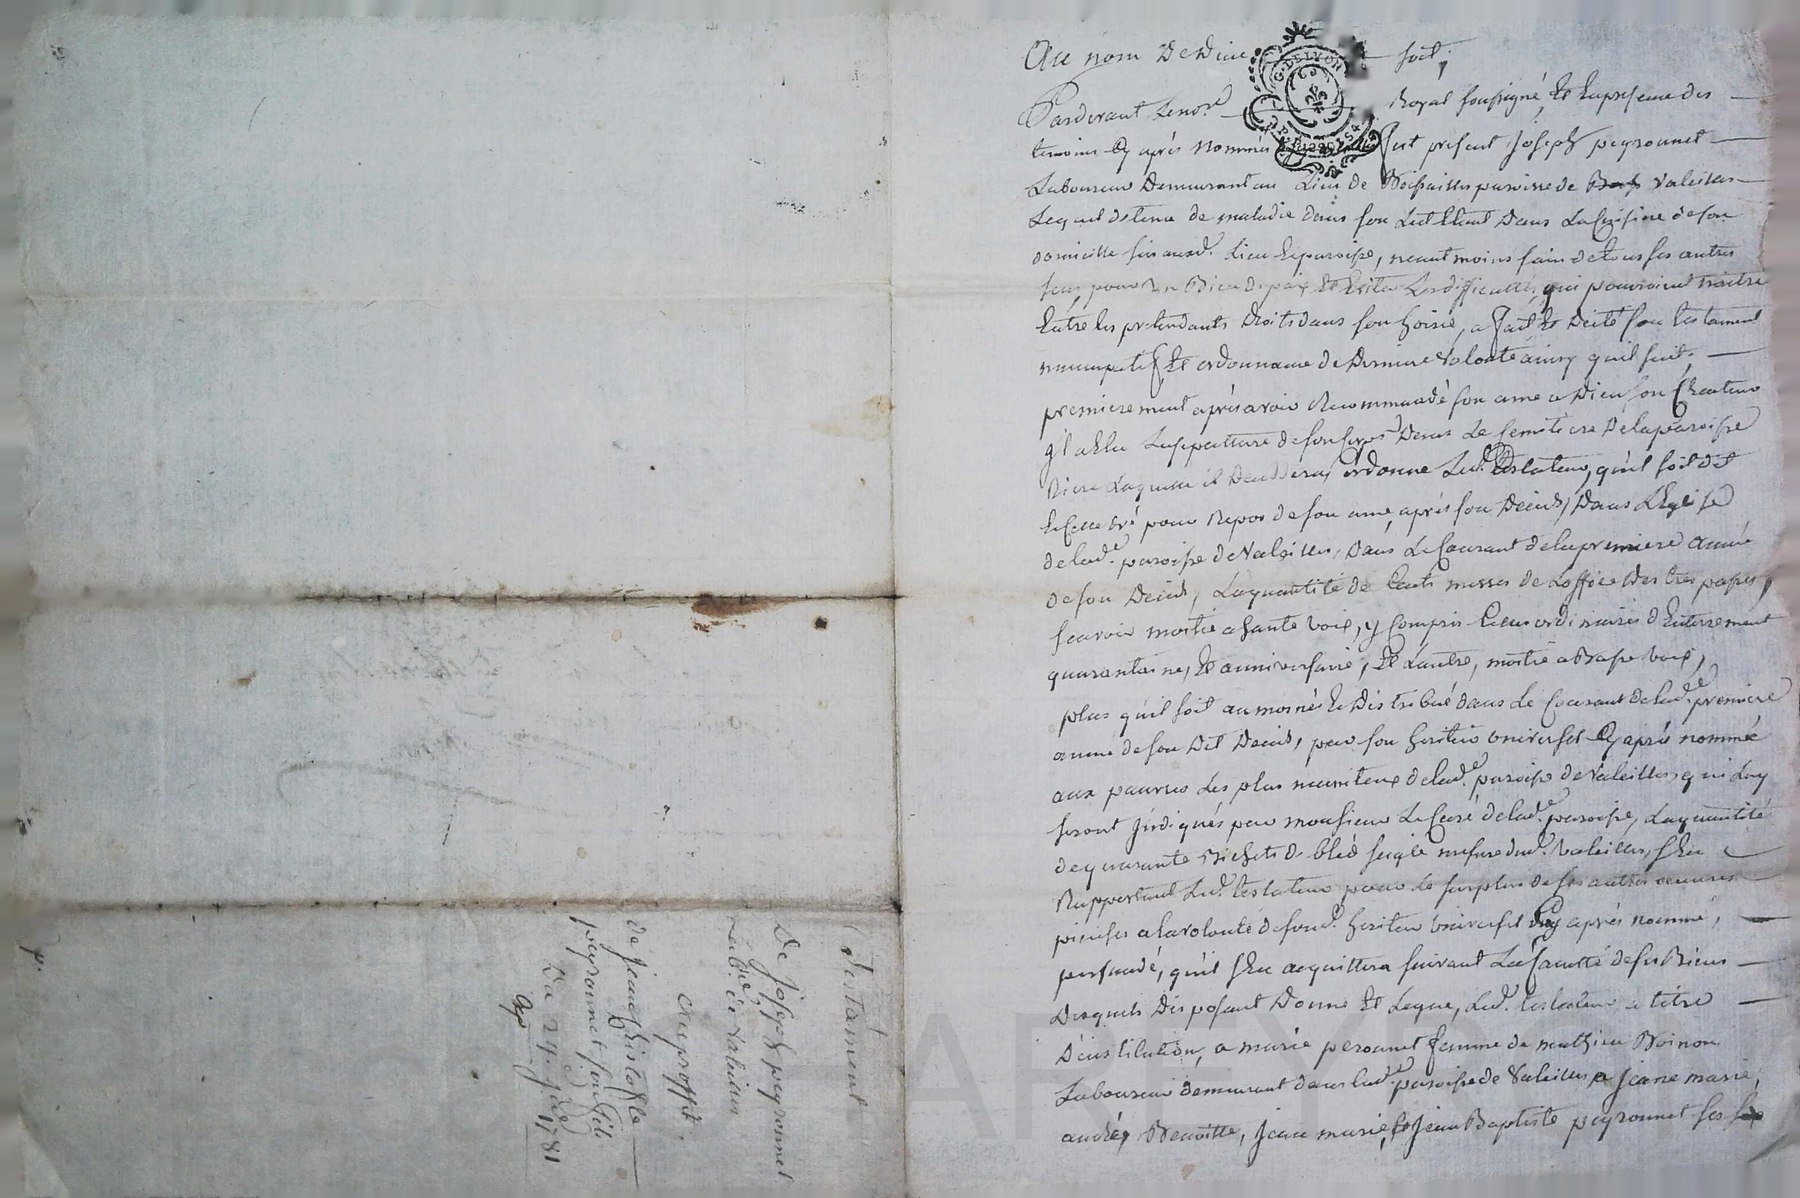 Au nom De Dieu soit,
G. DE LYON
Pardevant Le no.re Royal soussigné, Et En presence des
temoins Cy après Nommés fut present Joseph peyronnet
Laboureur Demeurant au Lieu de paroisse de Valeilles
Lequel detenu de maladie dans son Lict Etant Dans La Cuisine de son
domicille sis aud.t Lieu Et paroisse, neantmoins sain de tous ses autres
sens, pour Un Bien de paix Et Eviter Les difficultés, qui pourroient naitre
Entre les pretendants Droits dans son hoirie, a fait Et Dicté son testament
nuncupatif Et ordonnance de Derniere Volonté ainsy qu'il suit.
premierement après avoir Recommandé son ame a Dieu son Createur
il a Elu La sepulture de son Corps Dans Le semitiere De la paroisse
Riere Laquelle il Decedera, ordonne Led.t testateur, qu'il soit dit
Et Celebré pour Repos de son ame, après son Decès, Dans L'Eglise
de lad.e paroisse de Valeilles, Dans Le Courant de la premiere année
de son Decès, La quantité de Cents messes de L'office Des trepassés,
scavoir moitié a haute Voix, y Compris Celles ordinaires d'Enterrement
quarantaine, Et anniversaire, Et L'autre, moitié a Basse Voix,
plus qu'il soit aumoné Et Distribué dans Le Courant de lad.e premiere
année de son Dit Decès, par son heritier universel Cy après nommé
aux pauvres Les plus necessiteux de lad.e paroisse de Valeilles, qui Luy
seront Indiqués par monsieur Le Curé de lad.e paroisse, La quantité
de quarante Bichets de bled seigle mesure dud.t Valeilles, s'En
Rapportant Led.t testateur pour Le surplus de ses autres oeuvres
pieuses a la volonté de sond.t heritier universel Cy après nommé,
persuadé, qu'il s'En acquittera suivant La faculté de ses Biens
Desquels Disposant Donne Et Legue, Led.t testateur a titre
D'institution, a marie peronnet femme de mathieu Boinon
Laboureur demeurant dans lad.e paroisse de Valeilles, a Jeane marie,
andré, Benoitte, Jean marie, Et Jean Baptiste peyronnet ses
testament
De Joseph peyronnet
Lab.r de Valeilles
au proffit
de Jean Christofle
peyronnet son fils
Du 24 1781